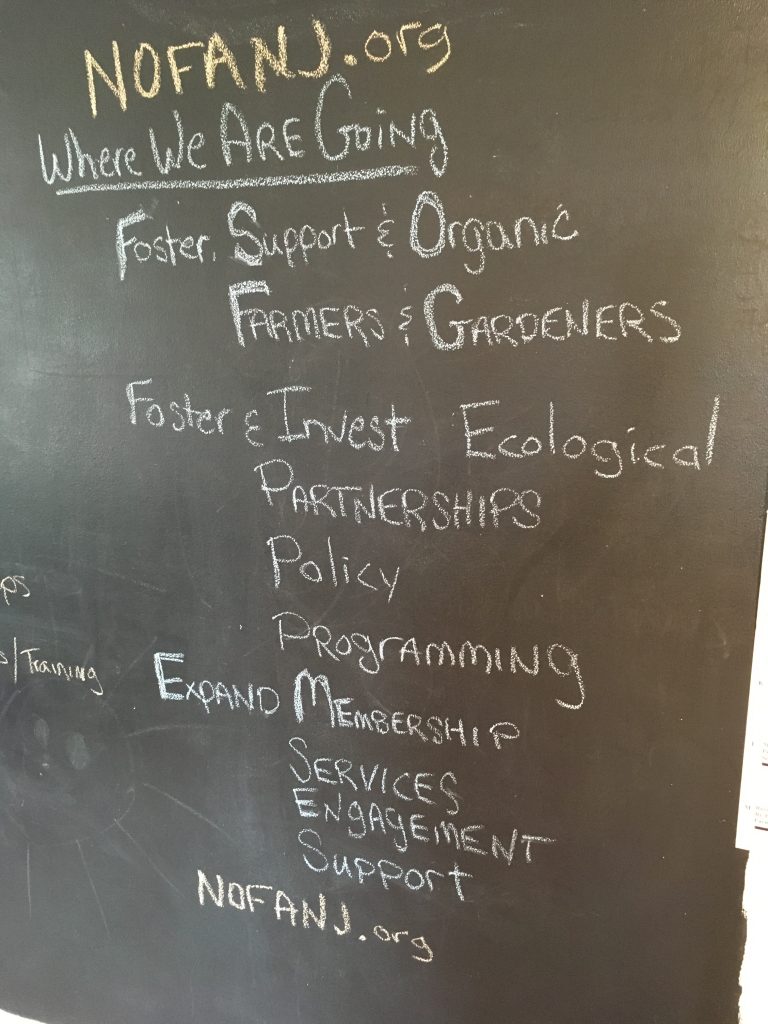 NOFANJ.org
Where We Are Going
Foster, Support & Organic
Farmers & Gardeners
Foster & Invest Ecological
Partnerships
Policy
ps
Programming
s/Training
Expand Membership
Services
Engagement
Support
NOFANJ.org